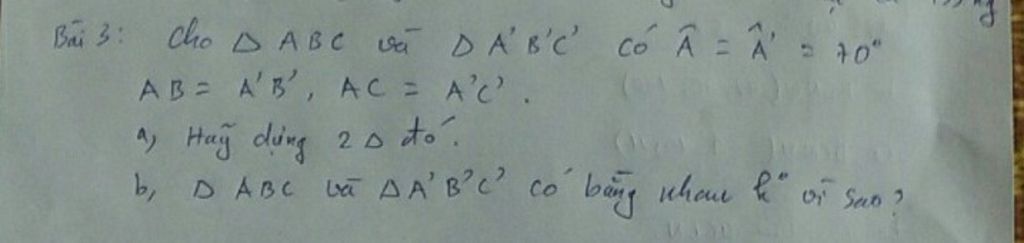 Bài 3: Cho Δ ABC và Δ A'B'C' có Â = Â' = 70°
AB = A'B', AC = A'C'.
a, Hãy dựng 2 Δ đó.
b, Δ ABC và Δ A'B'C' có bằng nhau k° vì sao?